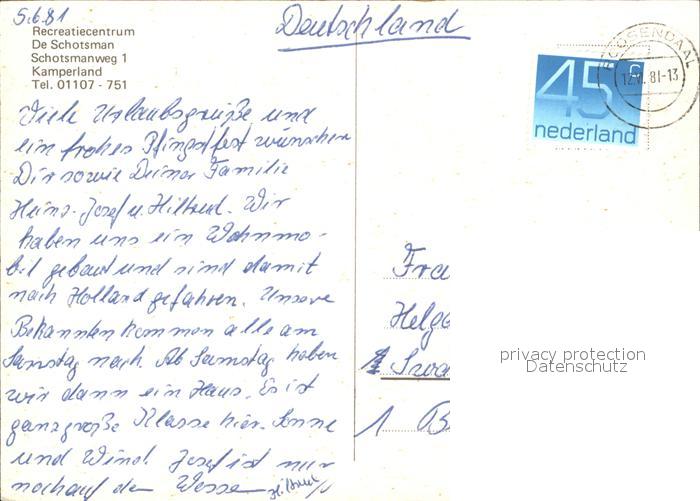 5.6.81
Deutschland
Recreatiecentrum
De Schotsman
Schotsmanweg 1
Kamperland
Tel. 01107 - 751
45 c
nederland
ROOSENDAAL
12.VI.81-13
Viele Urlaubsgrüße und
ein frohes Pfingstfest wünschen
Dir sowie Deiner Familie
Heinz-Josef u. Hiltrud. Wir
haben uns ein Wohnmo-
bil gebaut und sind damit
nach Holland gefahren. Unsere
Bekannten kommen alle am
Samstag nach. Ab Samstag haben
wir dann ein Haus. Es ist
ganz große Klasse hier. Sonne
und Wind. Josef ist nur
noch auf dem Wasser Hiltrud
Fra
Helga
Swa
1 B
privacy protection
Datenschutz